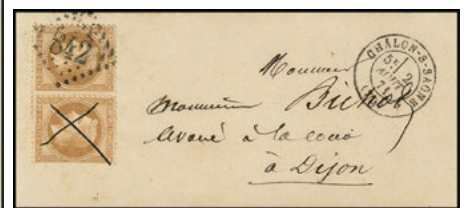 842
CHALON-S-SAONE
5E
26
AOUT
71
Monsieur
Monsieur
avoué à la cour
à Dijon